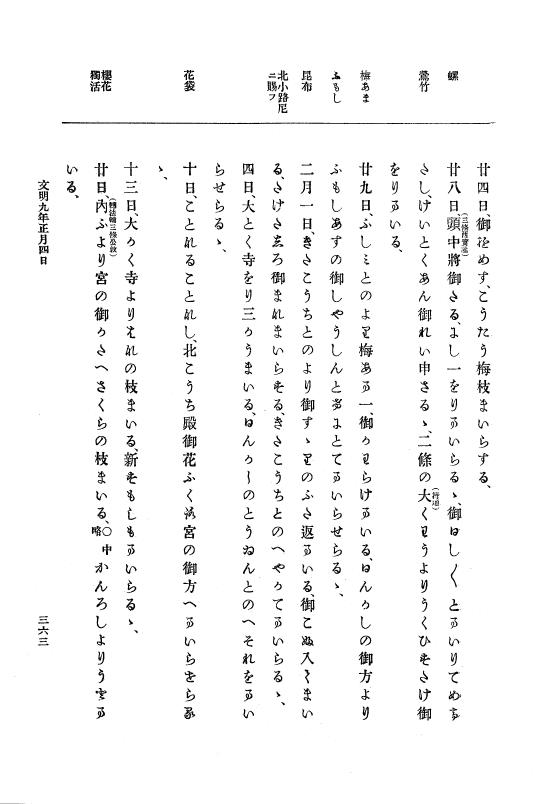 螺
鶯竹
梅あま
ふもし
昆布
北小路尼
ニ賜フ
花袋
櫻花
獨活
廿四日、御をめす、こうたう梅枝まいらする、
廿八日、頭中將(三條西實隆)御さる、にし一をりまいらるゝ、御ひし〱とまいりてめて
さし、けいとくあん御れい申さるゝ、二條の大(持通)くわうよりうくひすさけ御
をりまいる、
廿九日、ふしみとのより梅あま一、御かわらけまいる、ひんかしの御方より
ふもしあすの御しやうしんとてまいらせらるゝ、
二月一日、きたこうちとのより御すゝりのふた返まいる、御こぬ入てまい
る、御まいらする、きたこうちとのへやかてまいらるゝ、
四日、大とく寺より三かうまいる、ひんかしのとうゐんとのへそれをまい
らせらるゝ、
十日、ことなることなし、北こうち殿御花ふくろ宮の御方へまいらせらる
ゝ、
十三日、大かく寺(轉法輪三條公敦)よりはなの枝まいる、新すもしもまいらるゝ、
廿日、內ふより宮の御かたへさくらの枝まいる、○中略かんろしよりうとま
いる、
文明九年正月四日
三六三